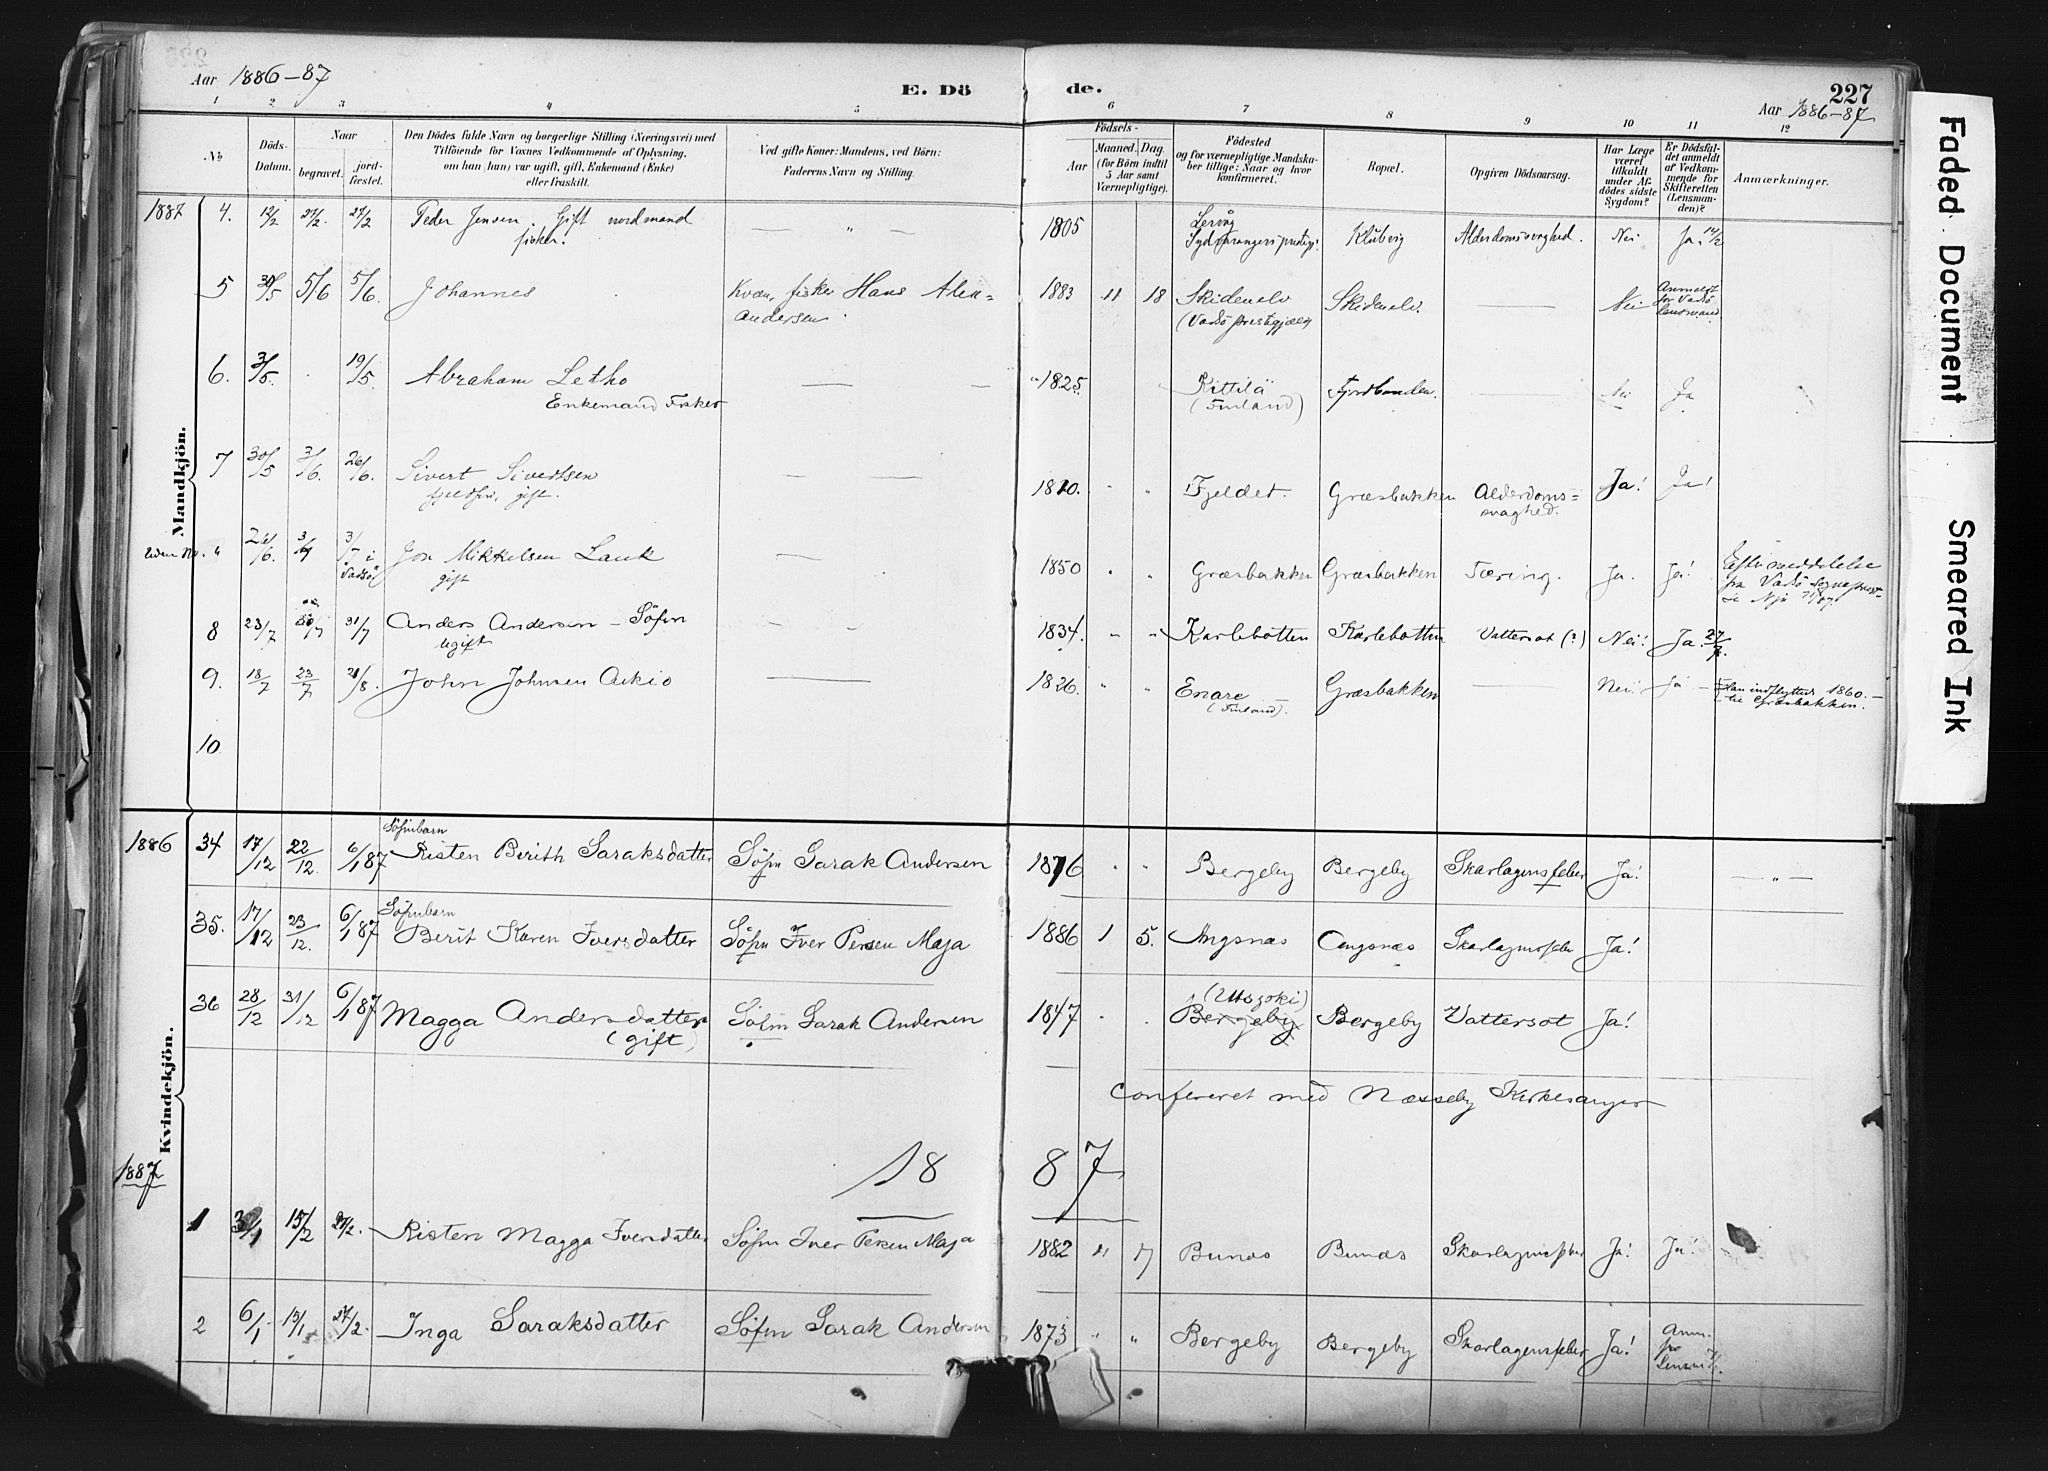 Aar 1886-87
E. Dö
de.
227
Aar 1886-87
1 2 3 4 5 6 7 8 9 10 11 12
No
Döds-
Datum.
Naar
begravet.
jord-
fæstet.
Den Dödes fulde Navn og borgerlige Stilling (Næringsvei) med
Tilföiende for Voxnes Vedkommende af Oplysning,
om han (hun) var ugift, gift, Enkemand (Enke)
eller fraskilt.
Ved gifte Koner: Mandens, ved Börn:
Faderens Navn og Stilling.
Födsels-
Aar
Maaned.
Dag.
(for Börn indtil
5 Aar samt
Værnepligtige).
Födested
og for værnepligtige Mandska-
ber tillige: Naar og hvor
konfirmeret.
Bopæl.
Opgiven Dödsaarsag.
Har Læge
været
tilkaldt
under Af-
dödes sidste
Sygdom?
Er Dödsfal-
det anmeldt
af Vedkom-
mende for
Skifteretten
(Lensman-
den)?
Anmærkninger.
Mandkjön.
1887 4. 12/2 27/2. 27/2 Peder Jensen. Gift nordmand — " — 1805 Klubvig Alderdomssvaghed. Nei Ja. 14/2
fisker.
5 30/5 5/6 5/6. Johannes Kvæn, fisker Hans Alex- 1883 11 18 Skidenelv Skidenelv. — Nei Anmeldt
Andersen. (Vadsö prestegjæld) for Vadsö
lensmand.
6. 19/5. Abraham Letho — — 1825. Kittilä Fjordbunden. — Nei Ja
Enkemand Fisker (Finland)
7 30/5 3/6. 26/6. Sivert Sivertsen — — 1810. " " Fjeldet. Græsbakken Alderdoms= Ja! Ja!
fjeldfin, gift. svaghed.
26/6. 3/7 3/7 i Jon Mikkelsen Lauk — — 1850 " " Græsbakken Græsbakken Tæring. Ja. Ja! Efter meddelelse
Vadsö gift fra Vadsö Sogneprest
8 23/7 31/7 Anders Andersen - Söfin — — 1834. " " Karlebotten Karlebotten Vattersot (?) Nei! Ja. 27/7.
ugift
9. 18/7 23/7 28/8. John Johnsen Aikio — 1826. " " Enare — Græsbakken — Nei! Ja — Han indflyttet 1860. —
(Finland). til Græsbakken.
10.
Kvindekjön.
Söfinbarn
1886 34 17/12 22/12. 6/1 87 Risten Berith Saraksdatter Söfin Sarak Andersen 1876 " " Bergeby Bergeby Skarlagensfeber Ja! — " —
Söfinbarn
35. 17/12 23/12. 6/1 87 Berit Karen Iversdatter Söfin Iver Persen Maja 1886 1 5. Angsnæs Angsnæs Skarlagensfeber Ja!
(Utsjoki)
36 28/12 31/12 6/1 87 Magga Andersdatter Söfin Sarak Andersen 1847 " " Bergeby Bergeby Vattersot Ja!
(gift)
Confereret med Næsseby Kirkesanger
1887
18 87
1 31/1 15/2 27/2. Risten Magga Iversdatter Söfin Iver Persen Maja 1882 11 17 Bunæs Bunæs Skarlagensfeber Ja! Ja!
2 6/1 15/1 27/2. Inga Saraksdatter Söfin Sarak Andersen 1873 " " Bergeby Bergeby Skarlagensfeber Ja! Anm.
for
Faded Document
Smeared Ink